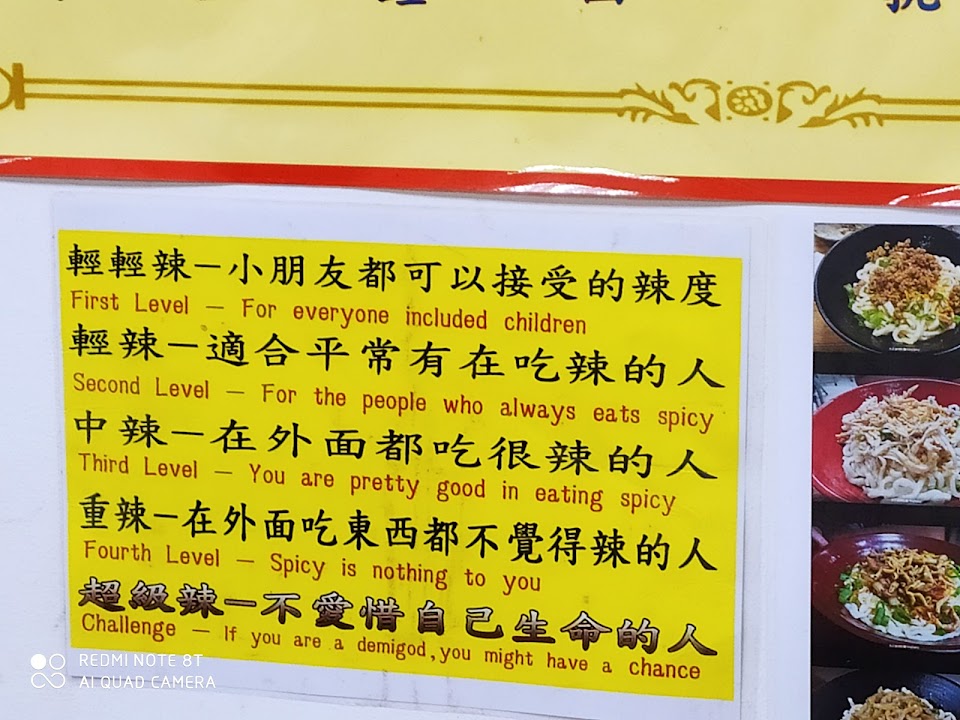 輕輕辣－小朋友都可以接受的辣度
First Level — For everyone included children
輕辣－適合平常有在吃辣的人
Second Level — For the people who always eats spicy
中辣－在外面都吃很辣的人
Third Level — You are pretty good in eating spicy
重辣－在外面吃東西都不覺得辣的人
Fourth Level — Spicy is nothing to you
超級辣－不愛惜自己生命的人
Challenge — If you are a demigod,you might have a chance
REDMI NOTE 8T
AI QUAD CAMERA